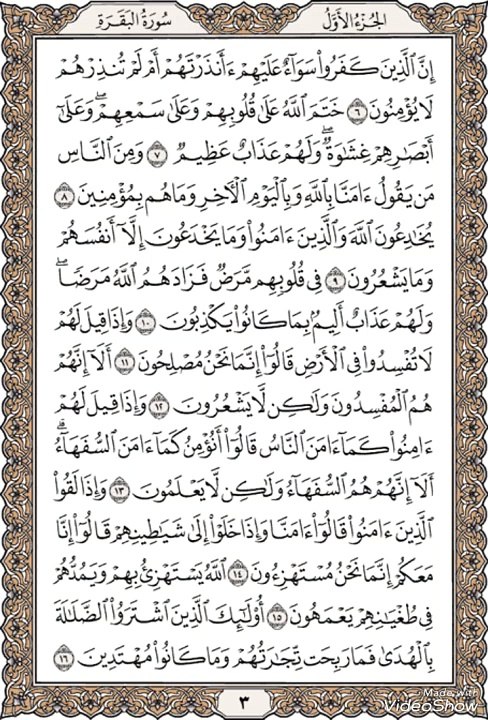 سُورَةُ البَقَرَةِ الجُزْءُ الأَوَّلُ
إِنَّ ٱلَّذِينَ كَفَرُوا۟ سَوَآءٌ عَلَيْهِمْ ءَأَنذَرْتَهُمْ أَمْ لَمْ تُنذِرْهُمْ
لَا يُؤْمِنُونَ ٦ خَتَمَ ٱللَّهُ عَلَىٰ قُلُوبِهِمْ وَعَلَىٰ سَمْعِهِمْ ۖ وَعَلَىٰٓ
أَبْصَٰرِهِمْ غِشَٰوَةٌ ۖ وَلَهُمْ عَذَابٌ عَظِيمٌ ٧ وَمِنَ ٱلنَّاسِ
مَن يَقُولُ ءَامَنَّا بِٱللَّهِ وَبِٱلْيَوْمِ ٱلْـَٔاخِرِ وَمَا هُم بِمُؤْمِنِينَ ٨
يُخَٰدِعُونَ ٱللَّهَ وَٱلَّذِينَ ءَامَنُوا۟ وَمَا يَخْدَعُونَ إِلَّآ أَنفُسَهُمْ
وَمَا يَشْعُرُونَ ٩ فِى قُلُوبِهِم مَّرَضٌ فَزَادَهُمُ ٱللَّهُ مَرَضًا ۖ
وَلَهُمْ عَذَابٌ أَلِيمٌۢ بِمَا كَانُوا۟ يَكْذِبُونَ ١٠ وَإِذَا قِيلَ لَهُمْ
لَا تُفْسِدُوا۟ فِى ٱلْأَرْضِ قَالُوٓا۟ إِنَّمَا نَحْنُ مُصْلِحُونَ ١١ أَلَآ إِنَّهُمْ
هُمُ ٱلْمُفْسِدُونَ وَلَٰكِن لَّا يَشْعُرُونَ ١٢ وَإِذَا قِيلَ لَهُمْ
ءَامِنُوا۟ كَمَآ ءَامَنَ ٱلنَّاسُ قَالُوٓا۟ أَنُؤْمِنُ كَمَآ ءَامَنَ ٱلسُّفَهَآءُ ۗ
أَلَآ إِنَّهُمْ هُمُ ٱلسُّفَهَآءُ وَلَٰكِن لَّا يَعْلَمُونَ ١٣ وَإِذَا لَقُوا۟
ٱلَّذِينَ ءَامَنُوا۟ قَالُوٓا۟ ءَامَنَّا وَإِذَا خَلَوْا۟ إِلَىٰ شَيَٰطِينِهِمْ قَالُوٓا۟ إِنَّا
مَعَكُمْ إِنَّمَا نَحْنُ مُسْتَهْزِءُونَ ١٤ ٱللَّهُ يَسْتَهْزِئُ بِهِمْ وَيَمُدُّهُمْ
فِى طُغْيَٰنِهِمْ يَعْمَهُونَ ١٥ أُو۟لَٰٓئِكَ ٱلَّذِينَ ٱشْتَرَوُا۟ ٱلضَّلَٰلَةَ
بِٱلْهُدَىٰ فَمَا رَبِحَت تِّجَٰرَتُهُمْ وَمَا كَانُوا۟ مُهْتَدِينَ ١٦
٣
Made with
VideoShow